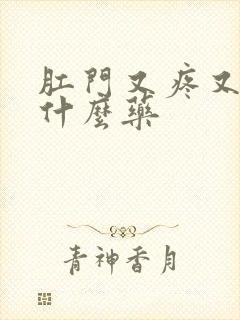 肛門又疼又
什麼藥
青神香月